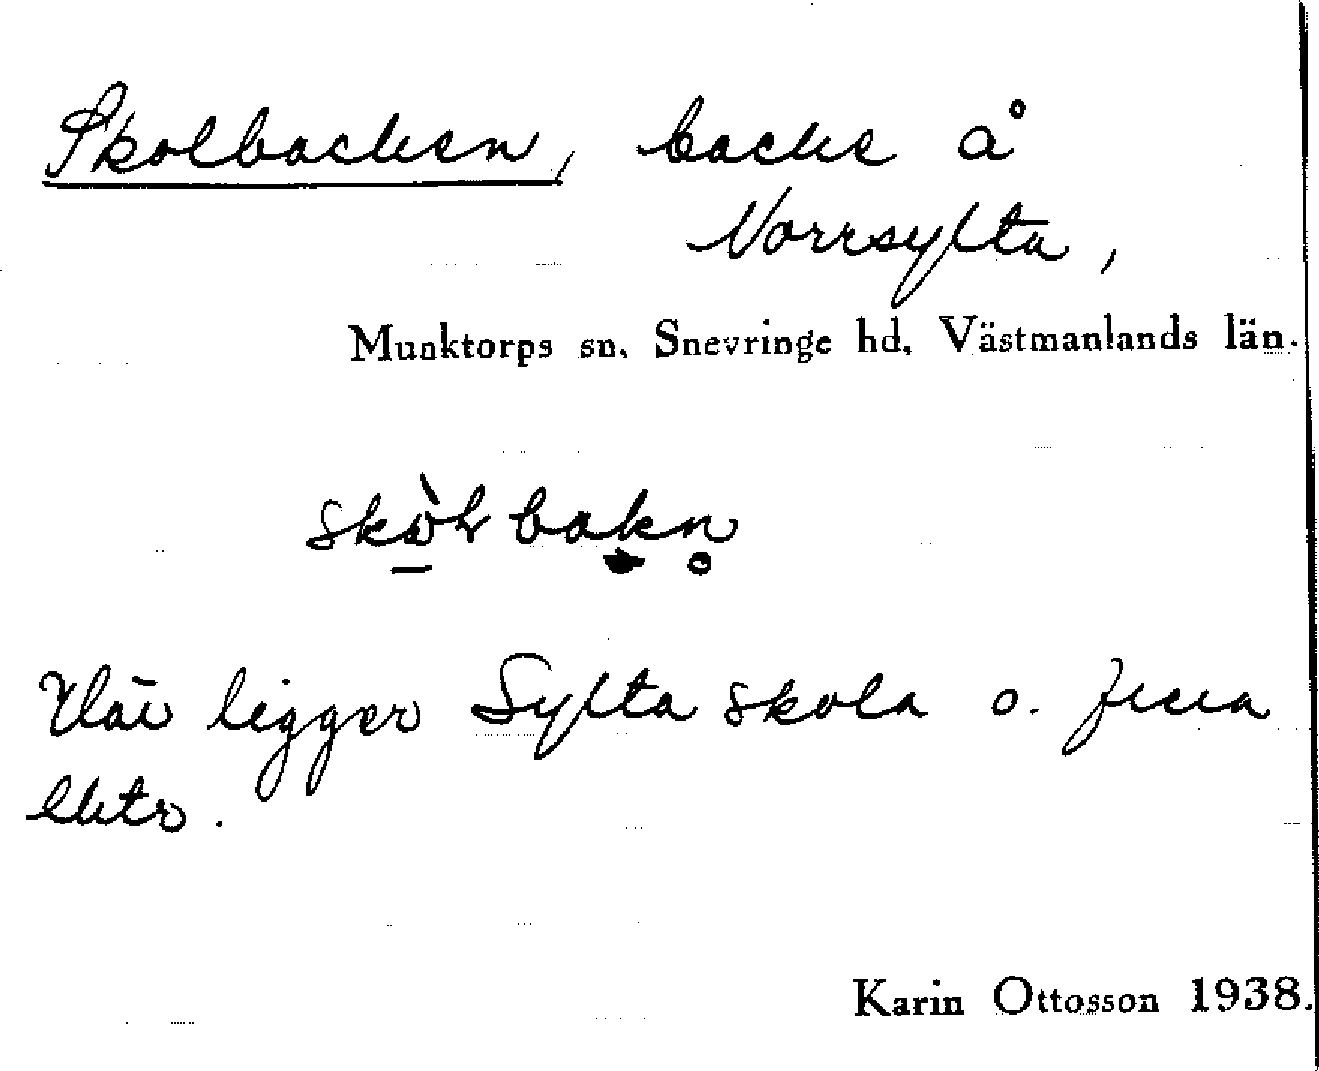 Skolbacken, backe å
Norrsylta,
Munktorps sn. Snevringe hd. Västmanlands län.
Här ligger Sylta skola o. flera
lhtr.
Karin Ottosson 1938.